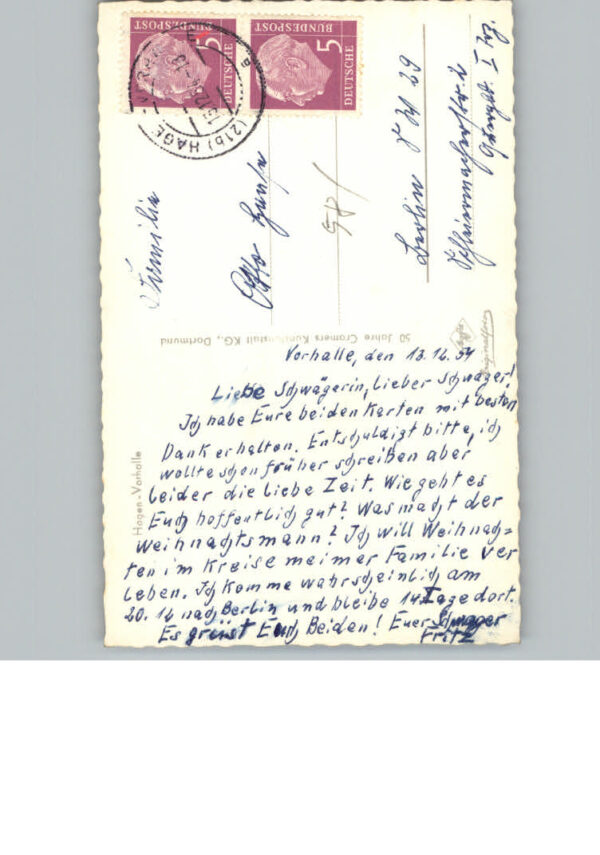 DEUTSCHE
BUNDESPOST
5
DEUTSCHE
BUNDESPOST
5
(21b) HAGEN-
Familie
Otto
58/
Berlin SW 29
50 Jahre Cramers Kunstanstalt KG., Dortmund
Hagen-Vorhalle
Vorhalle, den 13.12.54
Liebe Schwägerin, Lieber Schwager!
Ich habe Eure beiden Karten mit besten
Dank erhalten. Entschuldigt bitte, ich
wollte schon früher schreiben aber
leider die liebe Zeit. Wie geht es
Euch hoffentlich gut? Was macht der
Weihnachtsmann? Ich will Weihnach=
ten im Kreise meimer Familie ver
leben. Ich komme wahrscheinlich am
20.12 nach Berlin und bleibe 14 Tage dort.
Es grüst Euch Beiden! Euer Schwager
Fritz